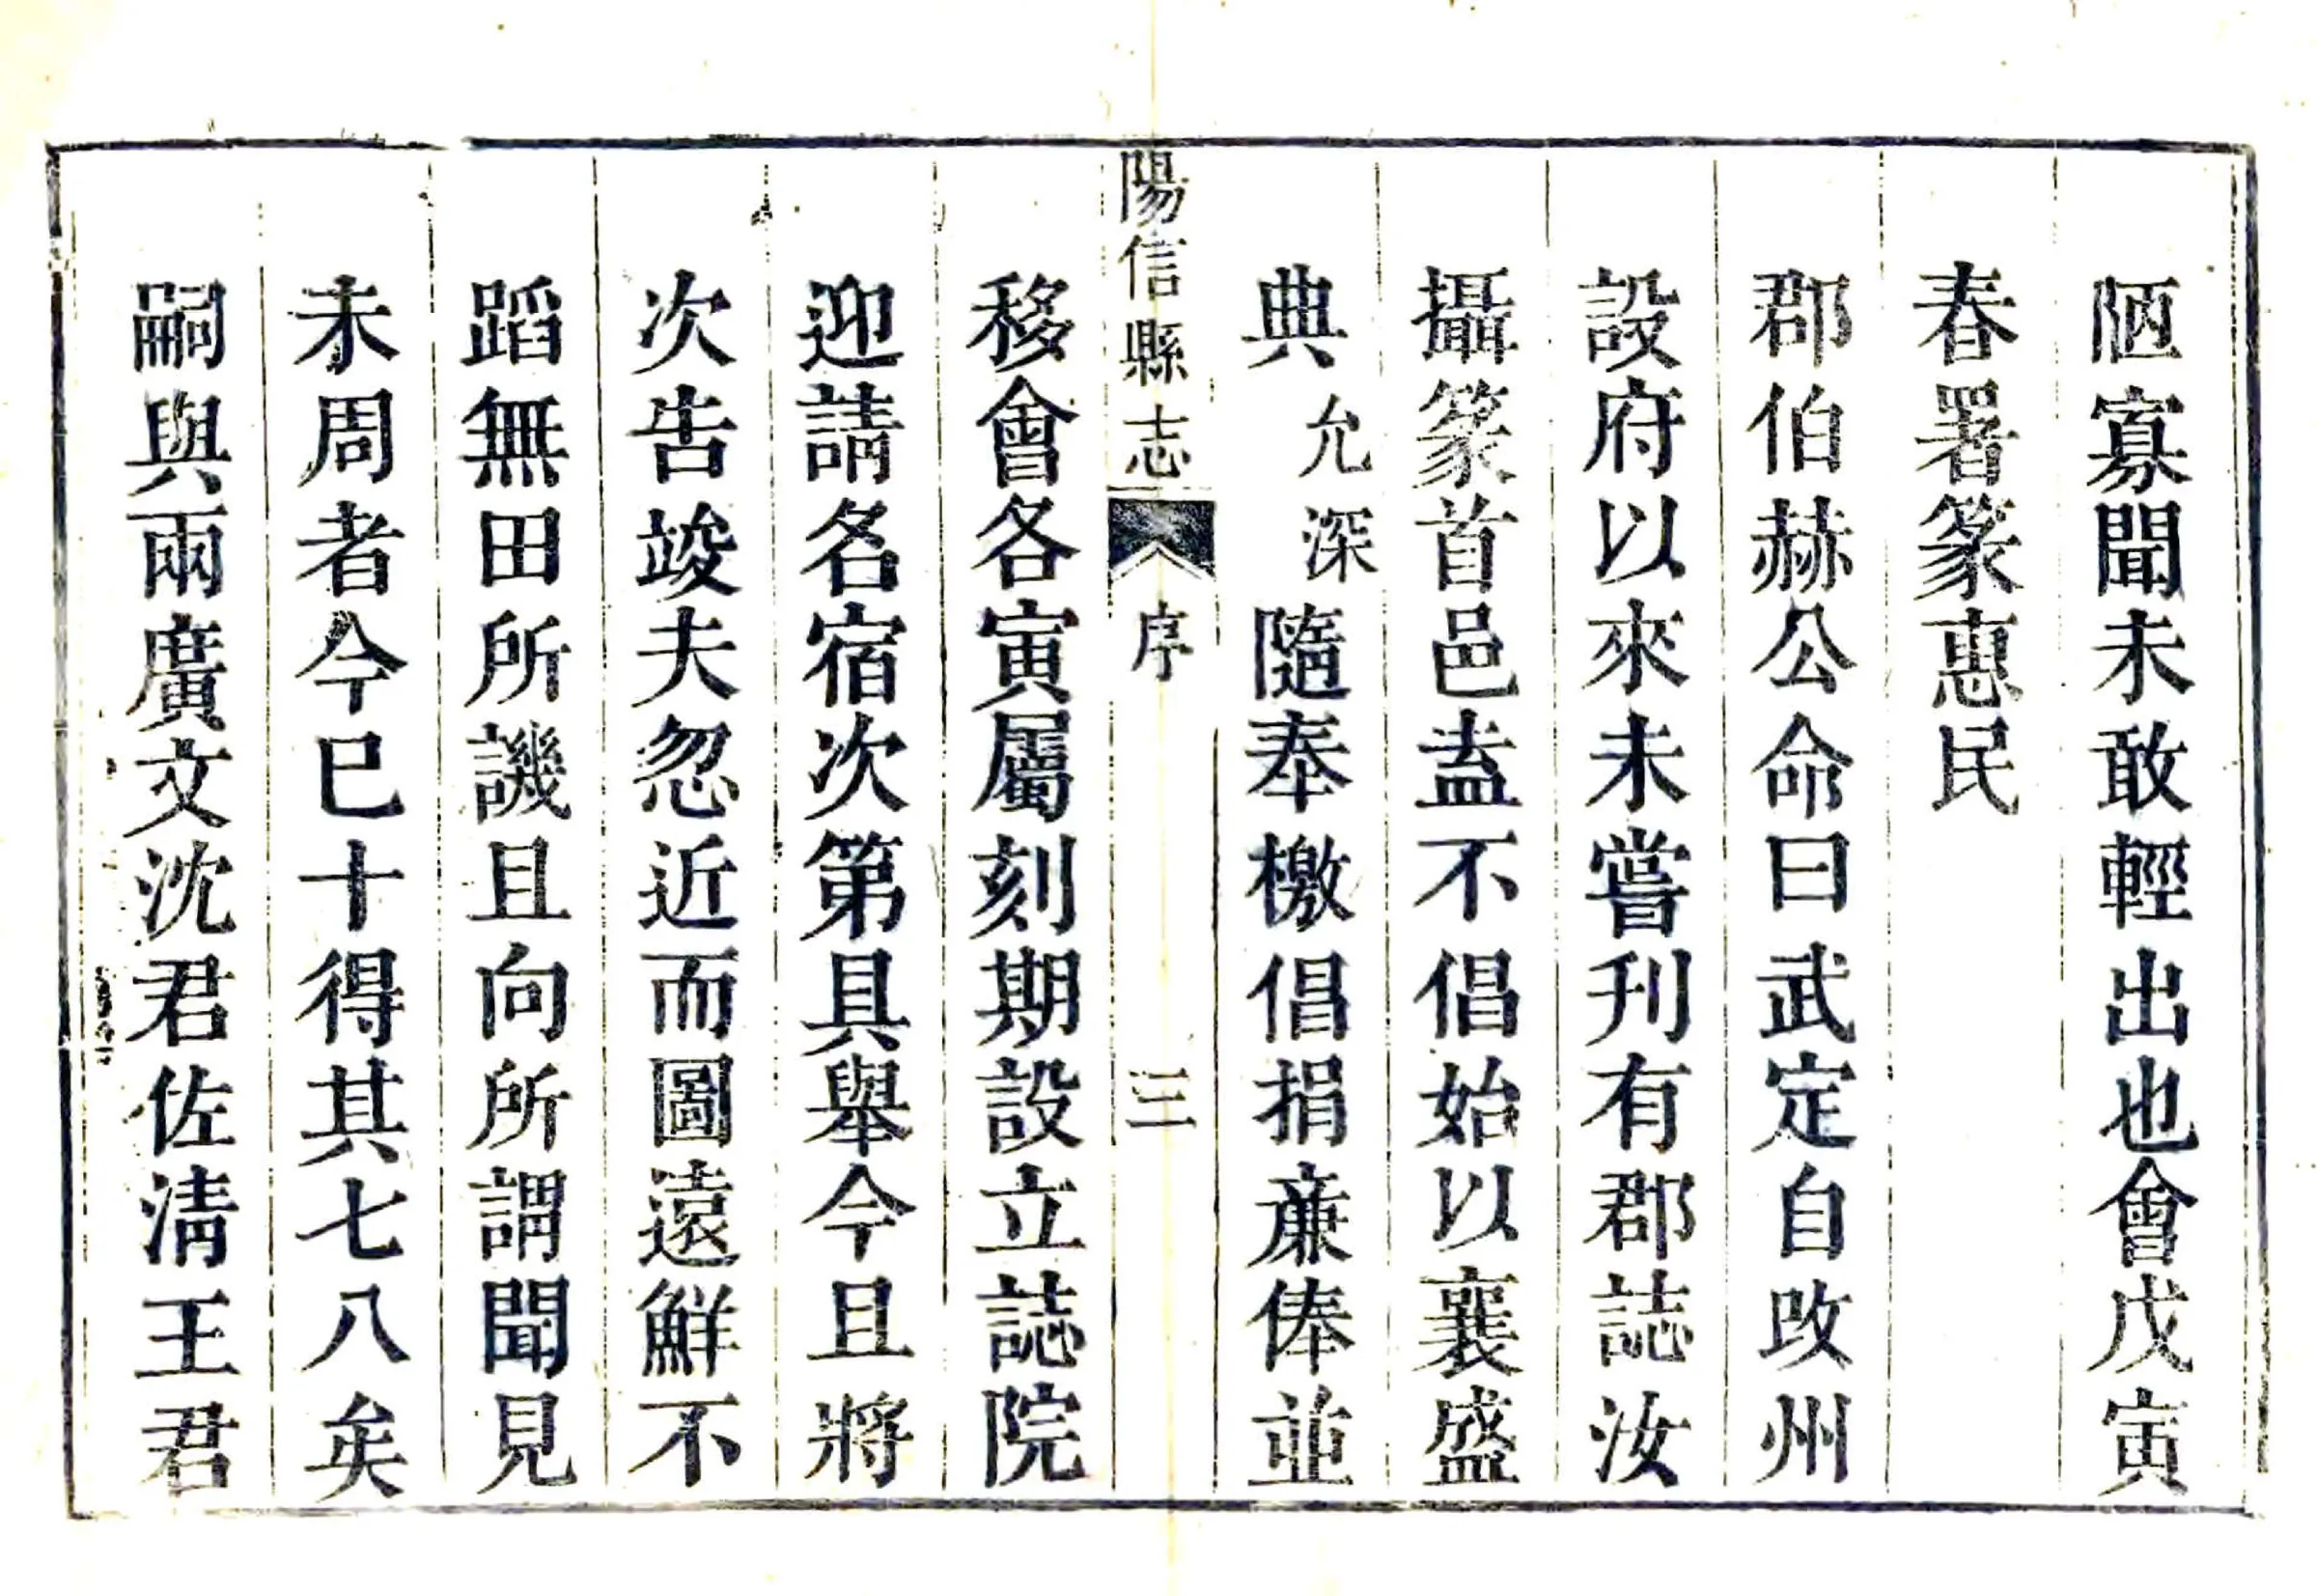 陋寡聞未敢輕出也會戊寅
春署篆惠民
郡伯赫公命曰武定自改州
設府以來未嘗刊有郡誌汝
攝篆首邑盍不倡始以襄盛
典允深隨奉檄倡捐亷俸並
陽信縣志 序 三
移會各寅屬刻期設立誌院
迎請名宿次第具舉今且將
次告竣夫忽近而圖遠鮮不
蹈無田所譏且向所謂聞見
未周者今巳十得其七八矣
嗣與兩廣文沈君佐清王君